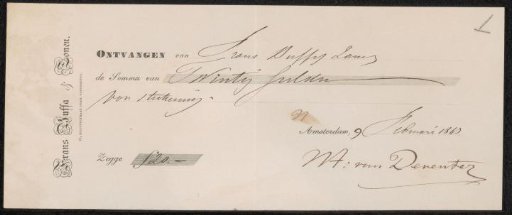 Frans Buffa & Zonen.
ONTVANGEN van Frans Buffa Zonen
de Somma van Twintig gulden
voor teekening.
Amsterdam, 9 Februari 1863
Zegge f 20.—
W: van Deventer